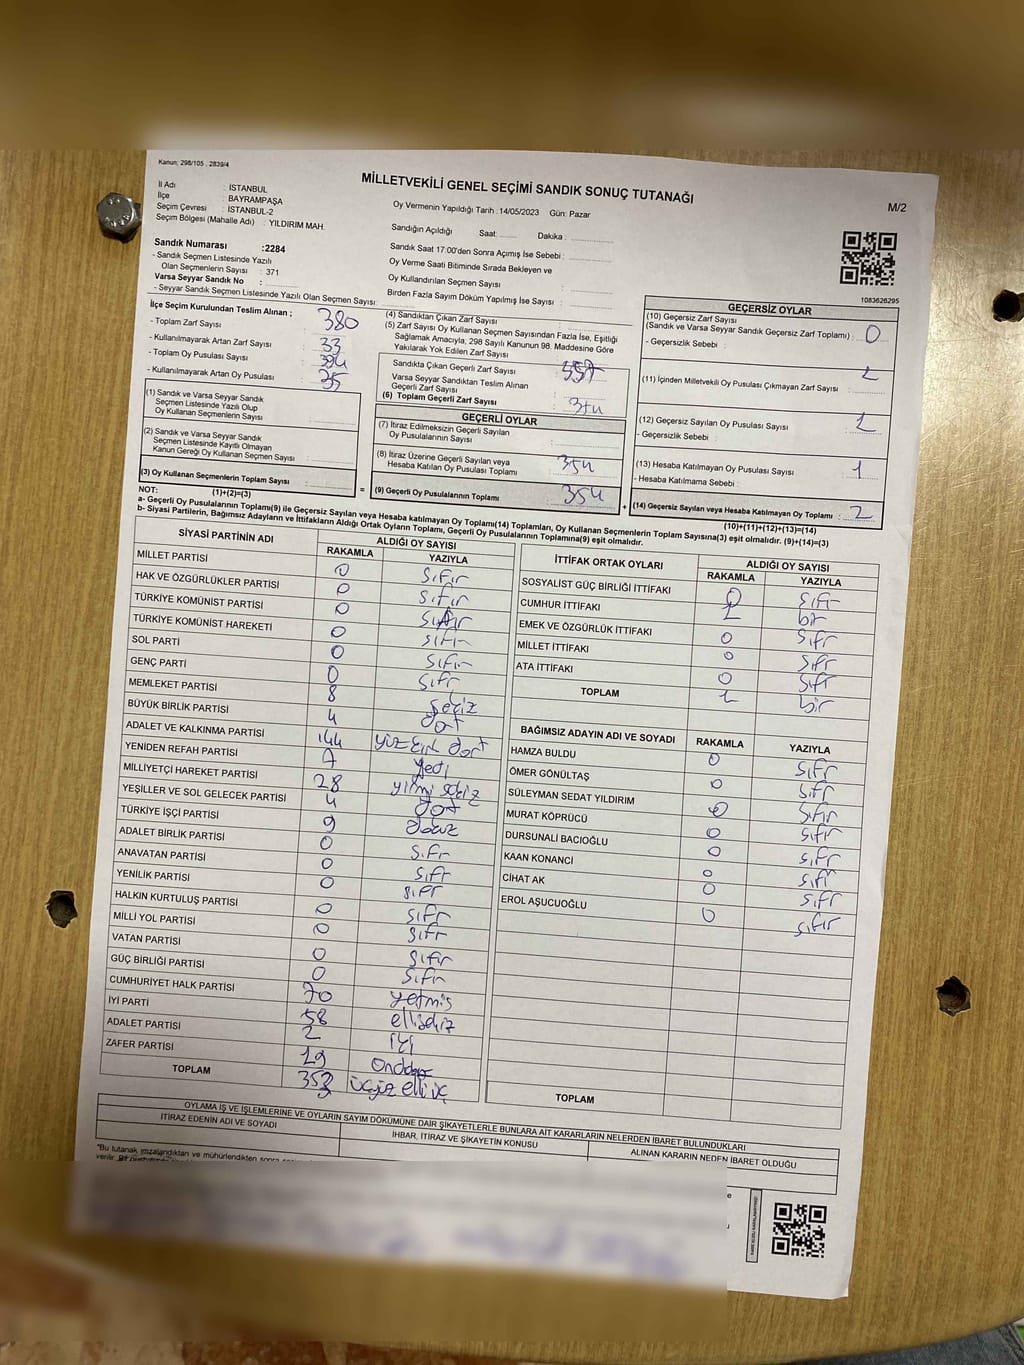 Kanun; 298/105 , 2839/4
MİLLETVEKİLİ GENEL SEÇİMİ SANDIK SONUÇ TUTANAĞI
M/2
İl Adı : İSTANBUL
İlçe : BAYRAMPAŞA
Seçim Çevresi : İSTANBUL-2
Seçim Bölgesi (Mahalle Adı) : YILDIRIM MAH.
Oy Vermenin Yapıldığı Tarih :14/05/2023 Gün: Pazar
Sandığın Açıldığı Saat: Dakika :
Sandık Saat 17:00'den Sonra Açımış İse Sebebi :
Oy Verme Saati Bitiminde Sırada Bekleyen ve
Oy Kullandırılan Seçmen Sayısı :
Birden Fazla Sayım Döküm Yapılmış İse Sayısı :
Sandık Numarası :2284
- Sandık Seçmen Listesinde Yazılı
Olan Seçmenlerin Sayısı : 371
Varsa Seyyar Sandık No :
- Seyyar Sandık Seçmen Listesinde Yazılı Olan Seçmen Sayısı:
1083626295
İlçe Seçim Kurulundan Teslim Alınan ;
- Toplam Zarf Sayısı : 380
- Kullanılmayarak Artan Zarf Sayısı : 33
- Toplam Oy Pusulası Sayısı
- Kullanılmayarak Artan Oy Pusulası : 35
(1) Sandık ve Varsa Seyyar Sandık
Seçmen Listesinde Yazılı Olup
Oy Kullanan Seçmenlerin Sayısı :
(2) Sandık ve Varsa Seyyar Sandık
Seçmen Listesinde Kayıtlı Olmayan
Kanun Gereği Oy Kullanan Seçmen Sayısı :
(3) Oy Kullanan Seçmenlerin Toplam Sayısı :
(1)+(2)=(3)
(4) Sandıktan Çıkan Zarf Sayısı :
(5) Zarf Sayısı Oy Kullanan Seçmen Sayısından Fazla İse, Eşitliği
Sağlamak Amacıyla, 298 Sayılı Kanunun 98. Maddesine Göre
Yakılarak Yok Edilen Zarf Sayısı
Sandıkta Çıkan Geçerli Zarf Sayısı :
Varsa Seyyar Sandıktan Teslim Alınan
Geçerli Zarf Sayısı :
(6) Toplam Geçerli Zarf Sayısı :
GEÇERLİ OYLAR
(7) İtiraz Edilmeksizin Geçerli Sayılan
Oy Pusulalarının Sayısı :
(8) İtiraz Üzerine Geçerli Sayılan veya
Hesaba Katılan Oy Pusulası Toplamı : 354
= (9) Geçerli Oy Pusulalarının Toplamı : 354 +
GEÇERSİZ OYLAR
(10) Geçersiz Zarf Sayısı
(Sandık ve Varsa Seyyar Sandık Geçersiz Zarf Toplamı) : 0
- Geçersizlik Sebebi :
(11) İçinden Milletvekili Oy Pusulası Çıkmayan Zarf Sayısı :
(12) Geçersiz Sayılan Oy Pusulası Sayısı : 1
- Geçersizlik Sebebi :
(13) Hesaba Katılmayan Oy Pusulası Sayısı : 1
- Hesaba Katılmama Sebebi :
(14) Geçersiz Sayılan veya Hesaba Katılmayan Oy Toplamı : 2
(10)+(11)+(12)+(13)=(14)
NOT:
a- Geçerli Oy Pusulalarının Toplamı(9) ile Geçersiz Sayılan veya Hesaba Katılmayan Oy Toplamı(14) Toplamları, Oy Kullanan Seçmenlerin Toplam Sayısına(3) eşit olmalıdır. (9)+(14)=(3)
b- Siyasi Partilerin, Bağımsız Adayların ve İttifakların Aldığı Ortak Oyların Toplamı, Geçerli Oy Pusulalarının Toplamına(9) eşit olmalıdır.
SİYASİ PARTİNİN ADI ALDIĞI OY SAYISI
RAKAMLA YAZIYLA
MİLLET PARTİSİ 0 sıfır
HAK VE ÖZGÜRLÜKLER PARTİSİ 0 sıfır
TÜRKİYE KOMÜNİST PARTİSİ 0 sıfır
TÜRKİYE KOMÜNİST HAREKETİ 0 sıfır
SOL PARTİ 0 sıfır
GENÇ PARTİ 0 sıfır
MEMLEKET PARTİSİ 8 sekiz
BÜYÜK BİRLİK PARTİSİ 4 dört
ADALET VE KALKINMA PARTİSİ 144 yüz kırk dört
YENİDEN REFAH PARTİSİ 7 yedi
MİLLİYETÇİ HAREKET PARTİSİ 28 yirmi sekiz
YEŞİLLER VE SOL GELECEK PARTİSİ 4 dört
TÜRKİYE İŞÇİ PARTİSİ 9 dokuz
ADALET BİRLİK PARTİSİ 0 sıfır
ANAVATAN PARTİSİ 0 sıfır
YENİLİK PARTİSİ 0 sıfır
HALKIN KURTULUŞ PARTİSİ 0 sıfır
MİLLİ YOL PARTİSİ 0 sıfır
VATAN PARTİSİ 0 sıfır
GÜÇ BİRLİĞİ PARTİSİ 0 sıfır
CUMHURİYET HALK PARTİSİ 70 yetmiş
İYİ PARTİ 58 ellisekiz
ADALET PARTİSİ 2 iki
ZAFER PARTİSİ 19 ondokuz
TOPLAM 353 üçyüz elli üç
İTTİFAK ORTAK OYLARI ALDIĞI OY SAYISI
RAKAMLA YAZIYLA
SOSYALİST GÜÇ BİRLİĞİ İTTİFAKI 0 sıfır
CUMHUR İTTİFAKI 1 bir
EMEK VE ÖZGÜRLÜK İTTİFAKI 0 sıfır
MİLLET İTTİFAKI 0 sıfır
ATA İTTİFAKI 0 sıfır
TOPLAM 1 bir
BAĞIMSIZ ADAYIN ADI VE SOYADI RAKAMLA YAZIYLA
HAMZA BULDU 0 sıfır
ÖMER GÖNÜLTAŞ 0 sıfır
SÜLEYMAN SEDAT YILDIRIM 0 sıfır
MURAT KÖPRÜCÜ 0 sıfır
DURSUNALİ BACIOĞLU 0 sıfır
KAAN KONANCI 0 sıfır
CİHAT AK 0 sıfır
EROL AŞUCUOĞLU 0 sıfır
TOPLAM
OYLAMA İŞ VE İŞLEMLERİNE VE OYLARIN SAYIM DÖKÜMÜNE DAİR ŞİKAYETLERLE BUNLARA AİT KARARLARIN NELERDEN İBARET BULUNDUKLARI
İTİRAZ EDENİN ADI VE SOYADI İHBAR, İTİRAZ VE ŞİKAYETİN KONUSU ALINAN KARARIN NEDEN İBARET OLDUĞU
*Bu tutanak imzalandıktan ve mühürlendikten sonra